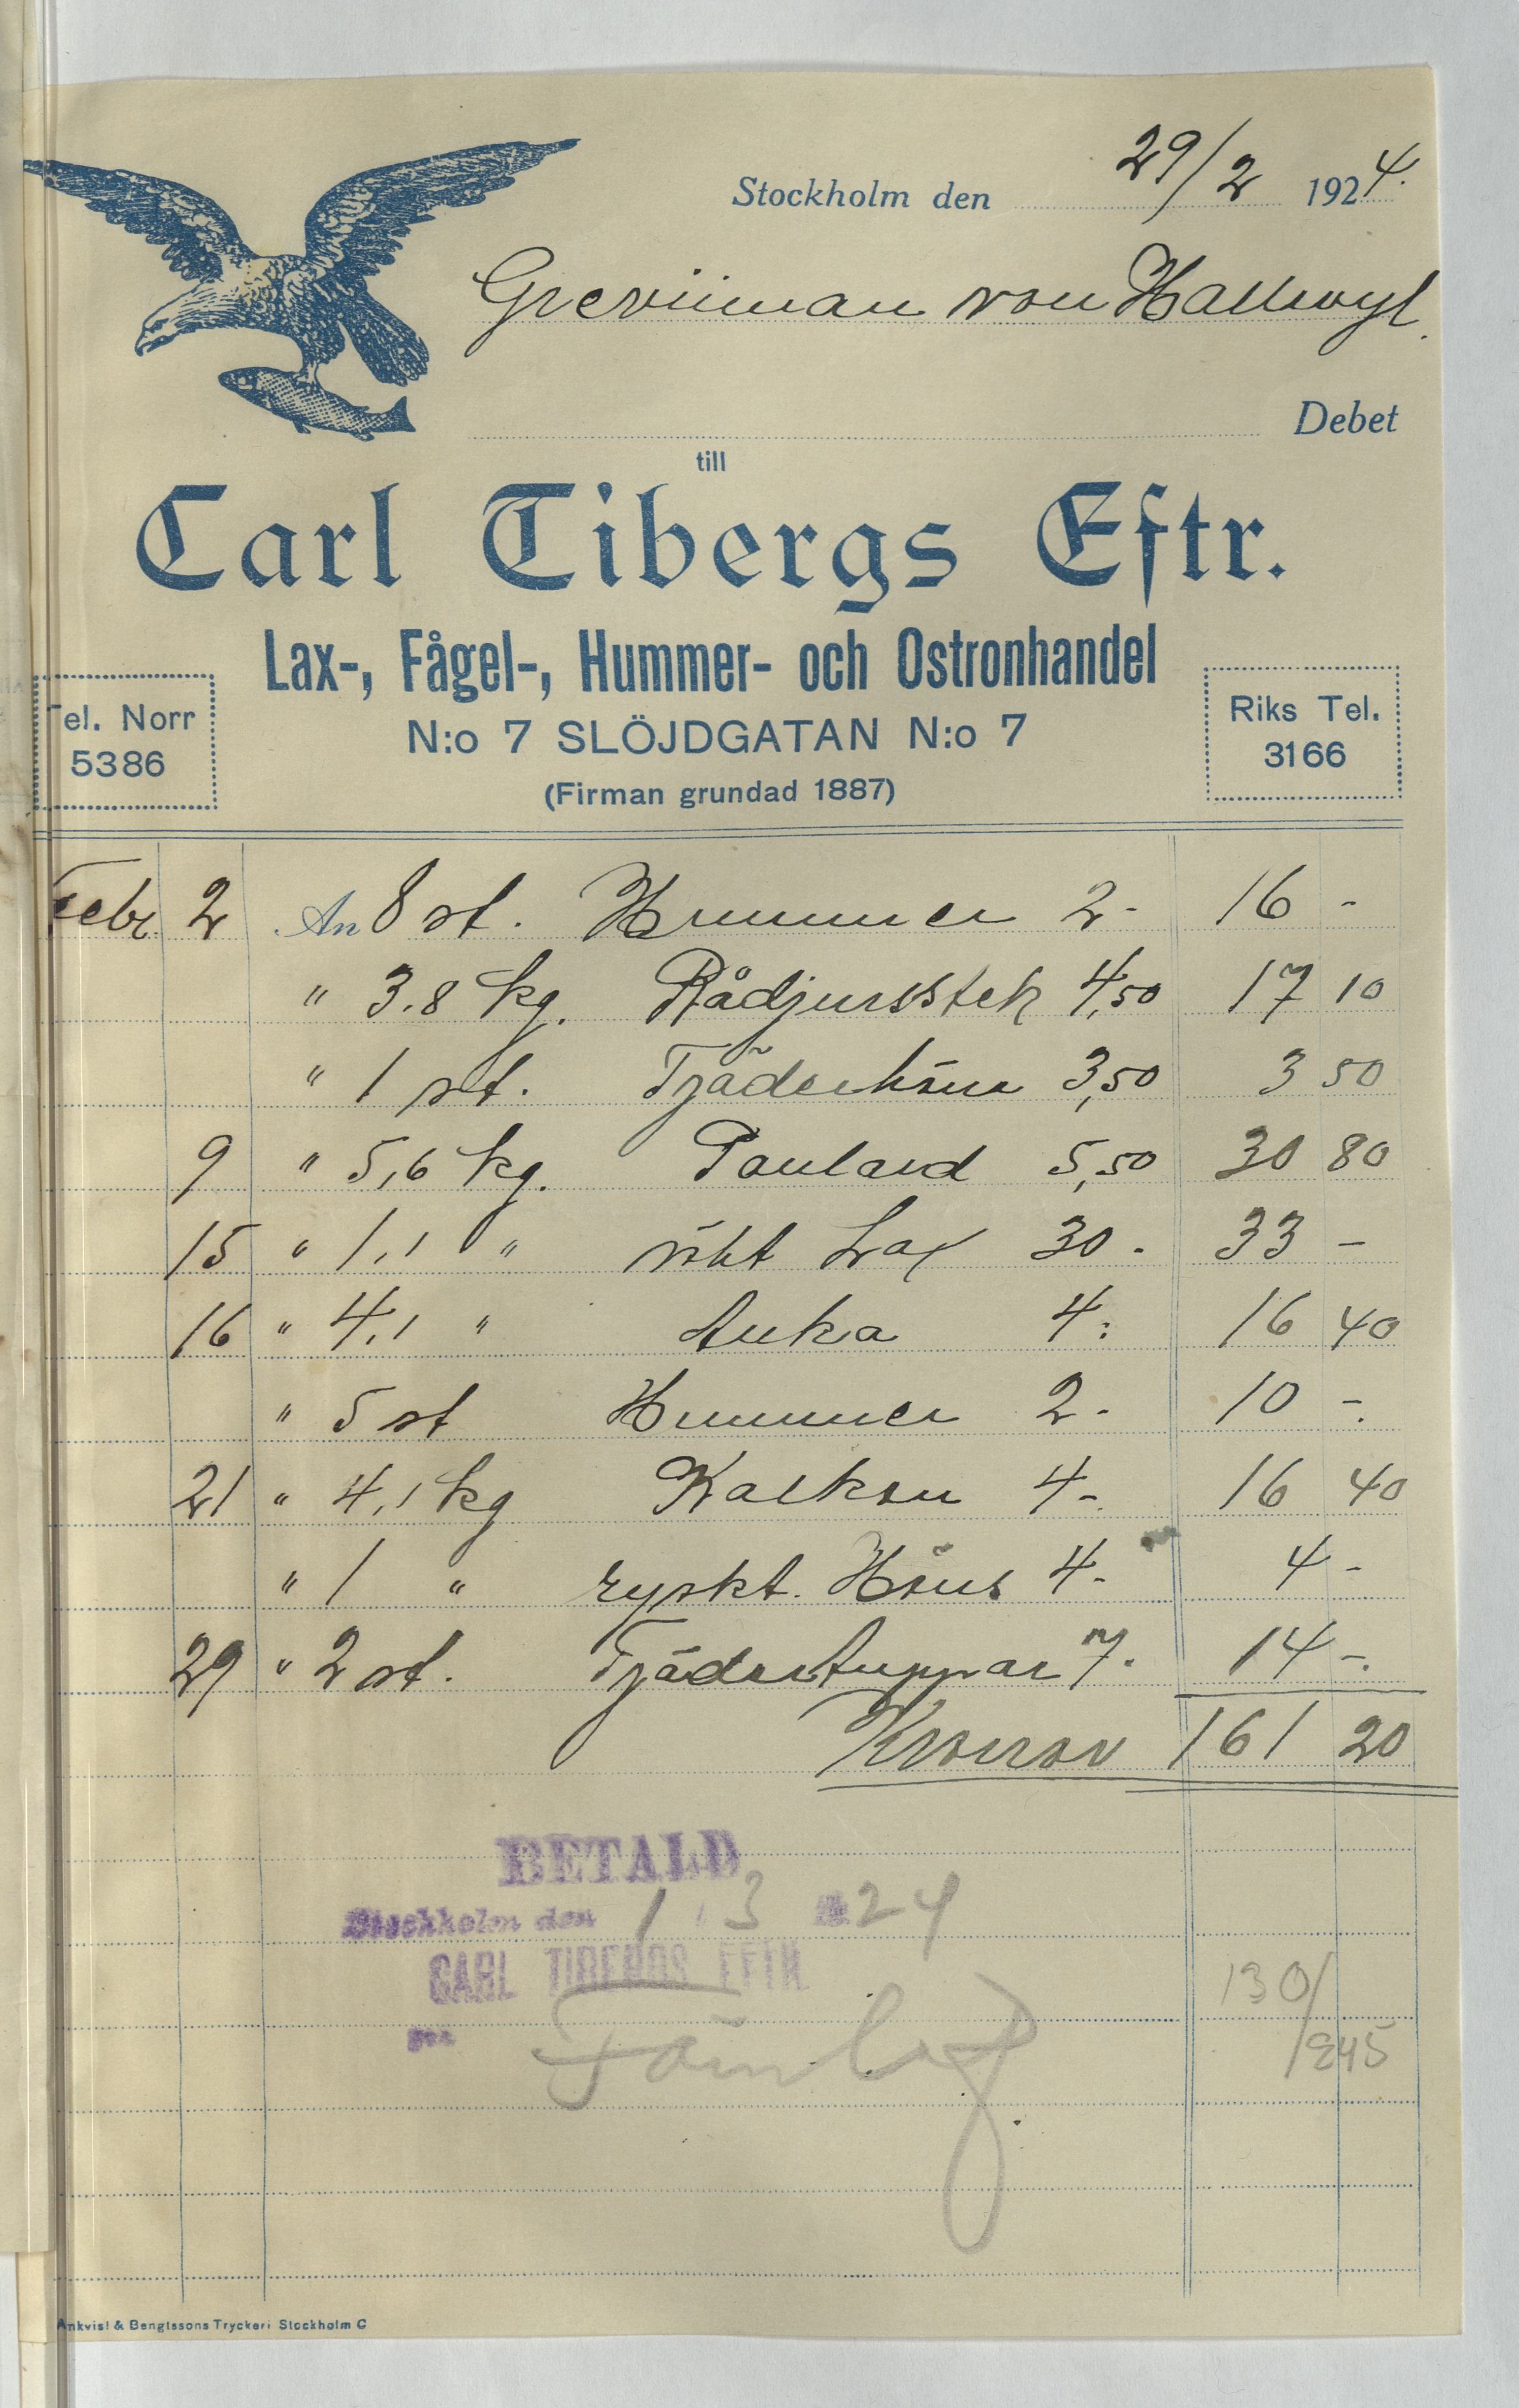 Stockholm den 29/2 1924.
Grevinnan von Hallwyl.
Debet
till
Carl Tibergs Eftr.
Lax-, Fågel-, Hummer- och Ostronhandel
Tel. Norr
5386
N:o 7 SLÖJDGATAN N:o 7
Riks Tel.
3166
(Firman grundad 1887)
Febr. 2 An 8 st. Hummer 2- 16 -
" 3.8 kg. Rådjursstek 4,50 17 10
" 1 st. Tjäderhöna 3,50 3 50
9 " 5,6 kg. Poulard 5,50 30 80
15 " 1,1 " rökt Lax 30. 33 -
16 " 4,1 " Anka 4: 16 40
" 5 st Hummer 2- 10 -.
21 " 4,1 kg Kalkon 4- 16 40
" 1 " ryskt. Höns 4- 4 -
29 " 2 st. Tjädertuppar 7. 14 -.
Kronor 161 20
BETALD
Stockholm den 1 / 3 1924
CARL TIBERGS EFTR.
130/
245
Ankvist & Bengtssons Tryckeri Stockholm C